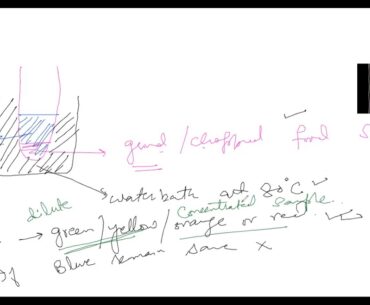 grind / chopped food S
water bath at 80°C
dilute
Concentrated Sample
→ green / yellow / orange or red.
If Blue remain same ×